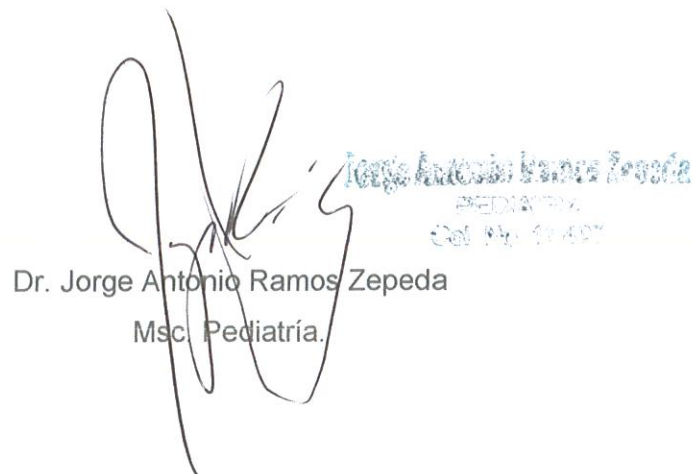 Jorge Antonio Ramos Zepeda
PEDIATRA
Col. No.
Dr. Jorge Antonio Ramos Zepeda
Msc. Pediatría.